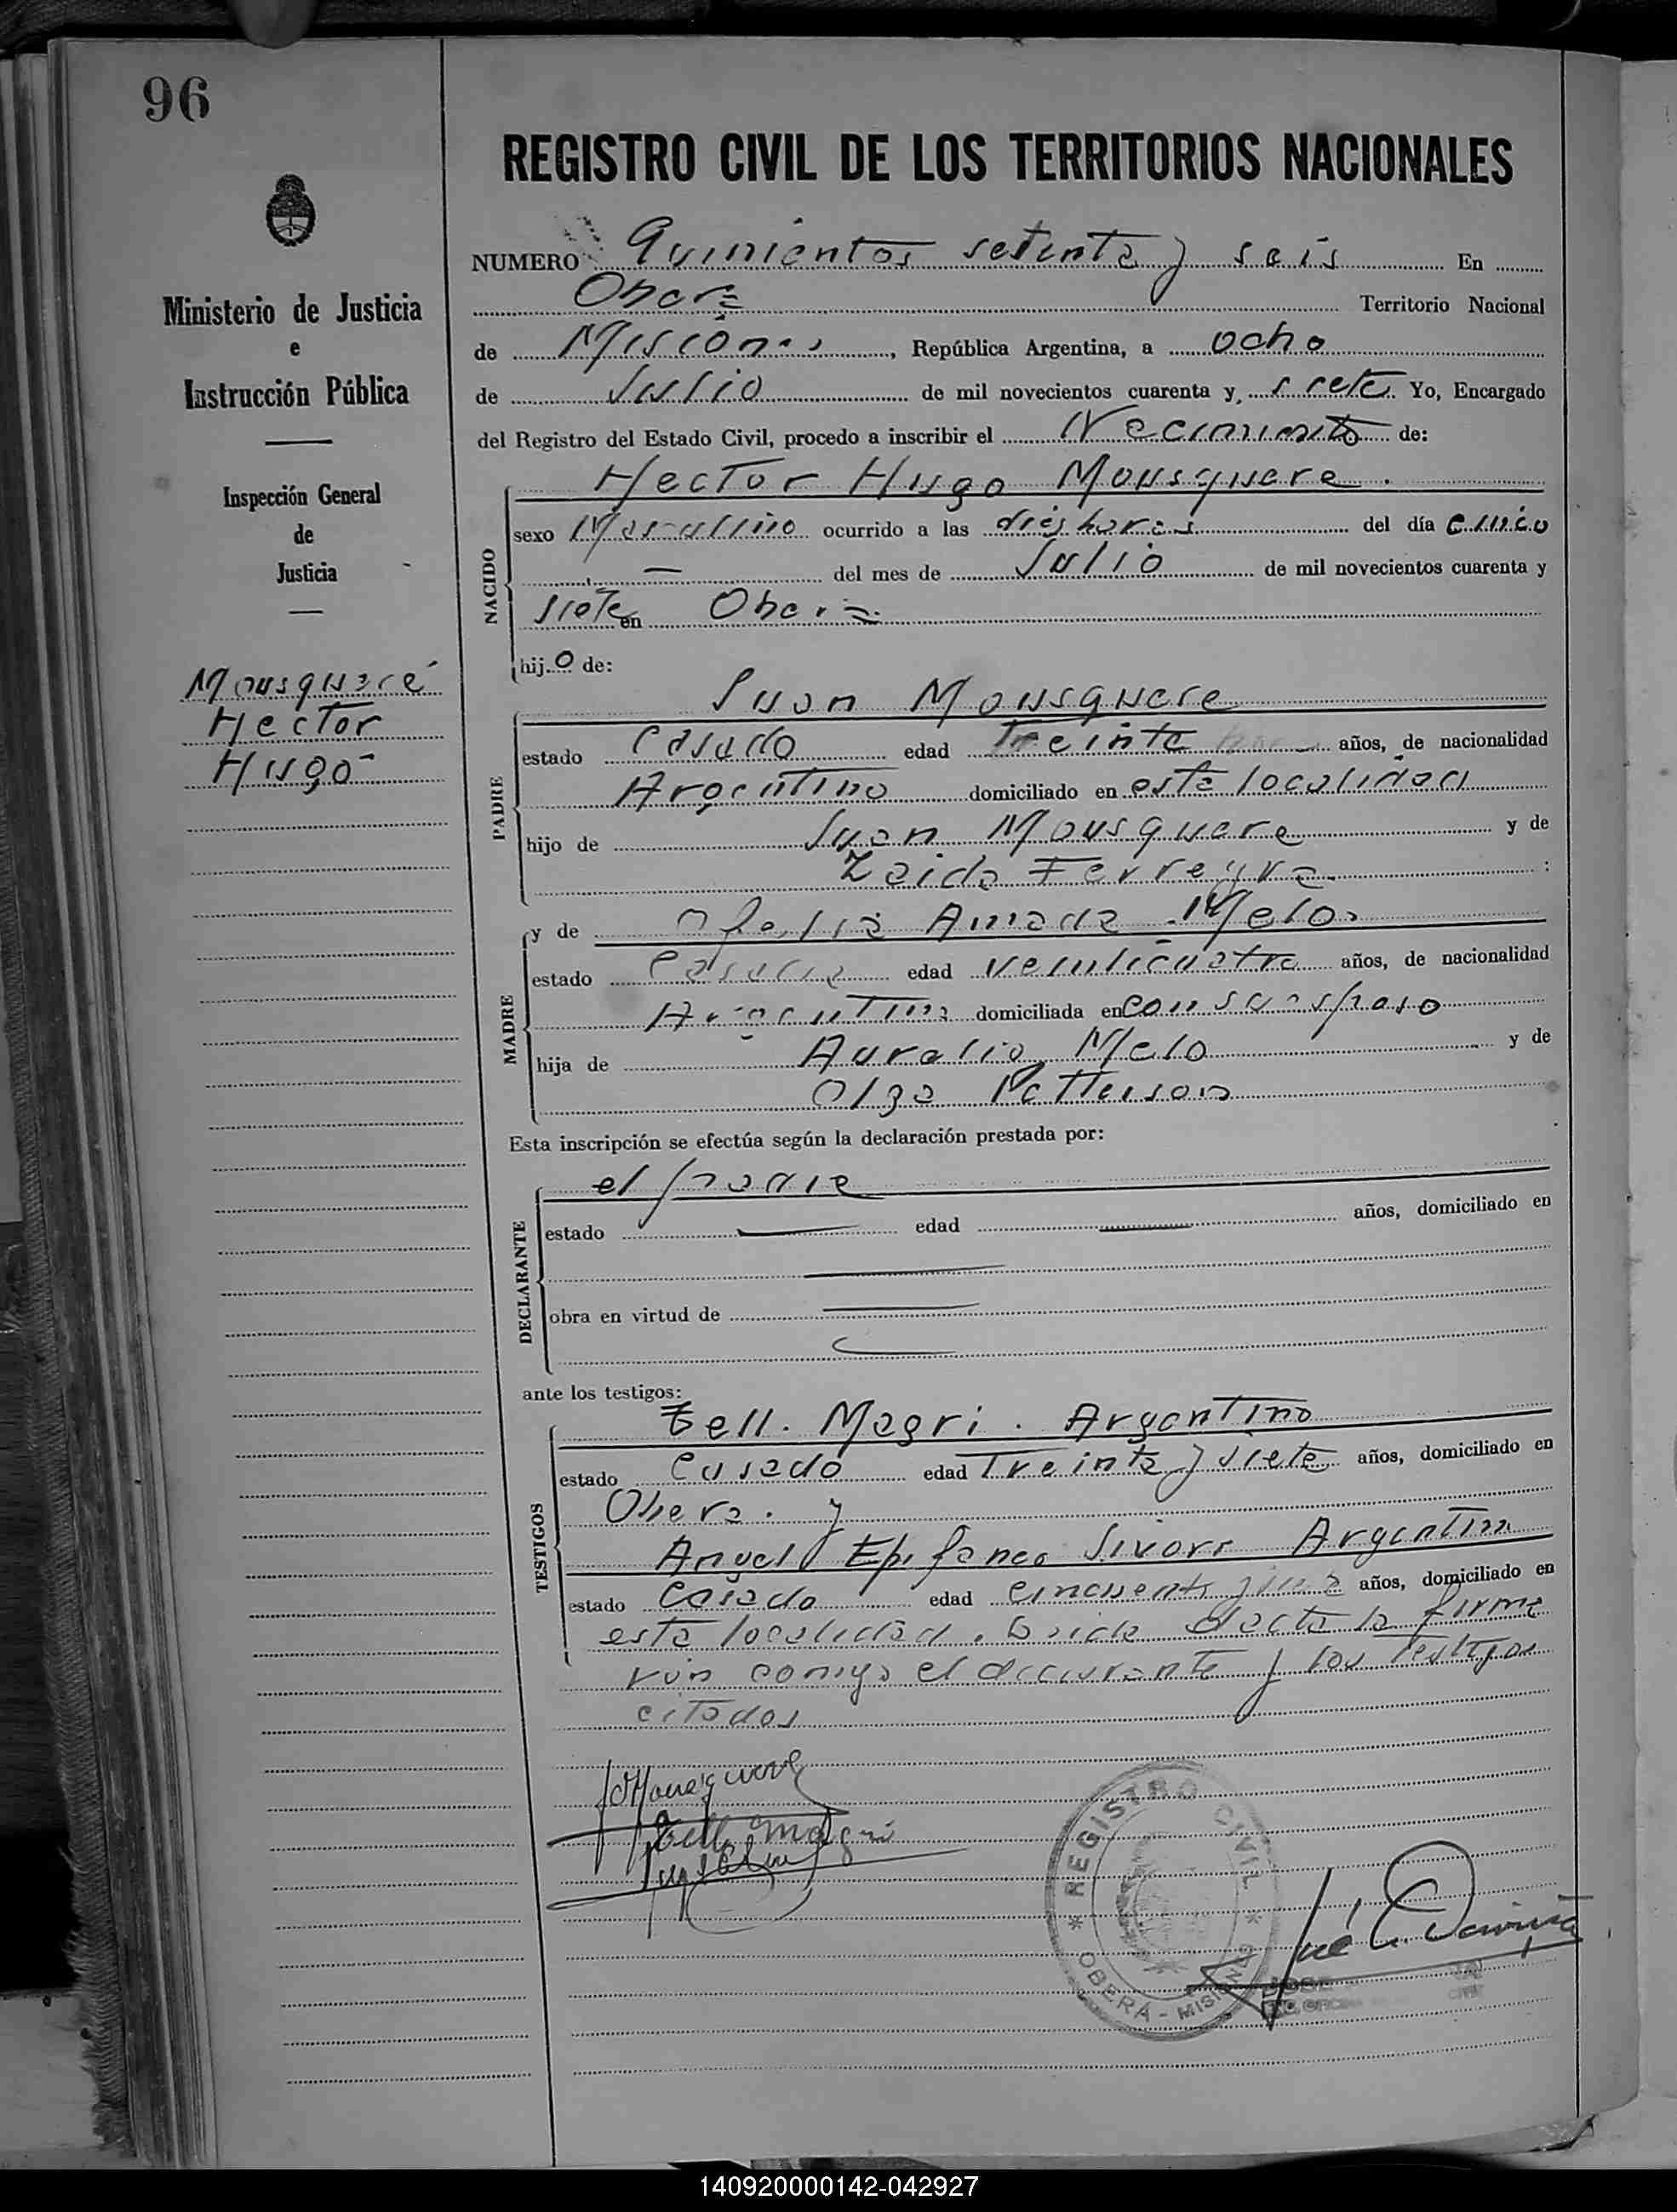 96
REGISTRO CIVIL DE LOS TERRITORIOS NACIONALES
NUMERO Quinientos setenta y seis En
Obera
Territorio Nacional
de Misiones, República Argentina, a ocho
de Julio de mil novecientos cuarenta y, siete Yo, Encargado
del Registro del Estado Civil, procedo a inscribir el Nacimiento de:
Ministerio de Justicia
e
Instrucción Pública
Inspección General
de
Justicia
Mousqueré
Hector
Hugo
NACIDO
Hector Hugo Mousquere.
sexo Masculino ocurrido a las diés horas del día cinco
— del mes de Julio de mil novecientos cuarenta y
siete en Obera
hijo de:
PADRE
Juan Mousquere
estado Casado edad Treinta años, de nacionalidad
Argentino domiciliado en esta localidad
hijo de Juan Mousquere y de
Zaida Ferreyra
MADRE
y de Ofelia Amada Melo
estado Casada edad veinticuatro años, de nacionalidad
Argentina domiciliada en con su esposo
hija de Aurelio Melo y de
Olga Patterson
Esta inscripción se efectúa según la declaración prestada por:
DECLARANTE
el padre
estado — edad — años, domiciliado en
obra en virtud de
ante los testigos:
TESTIGOS
Tell. Magri. Argentino
estado Casado edad Treinta y siete años, domiciliado en
Obera. y
Angel Epifaneo Sivori Argentino
estado Casado edad cincuenta años, domiciliado en
esta localidad. Leida el acta la firma
ron comigo el declarante y los testigos
citados
JMousquere
Tell Magri
REGISTRO CIVIL
OBERÁ - MISIONES
JOSE
140920000142-042927